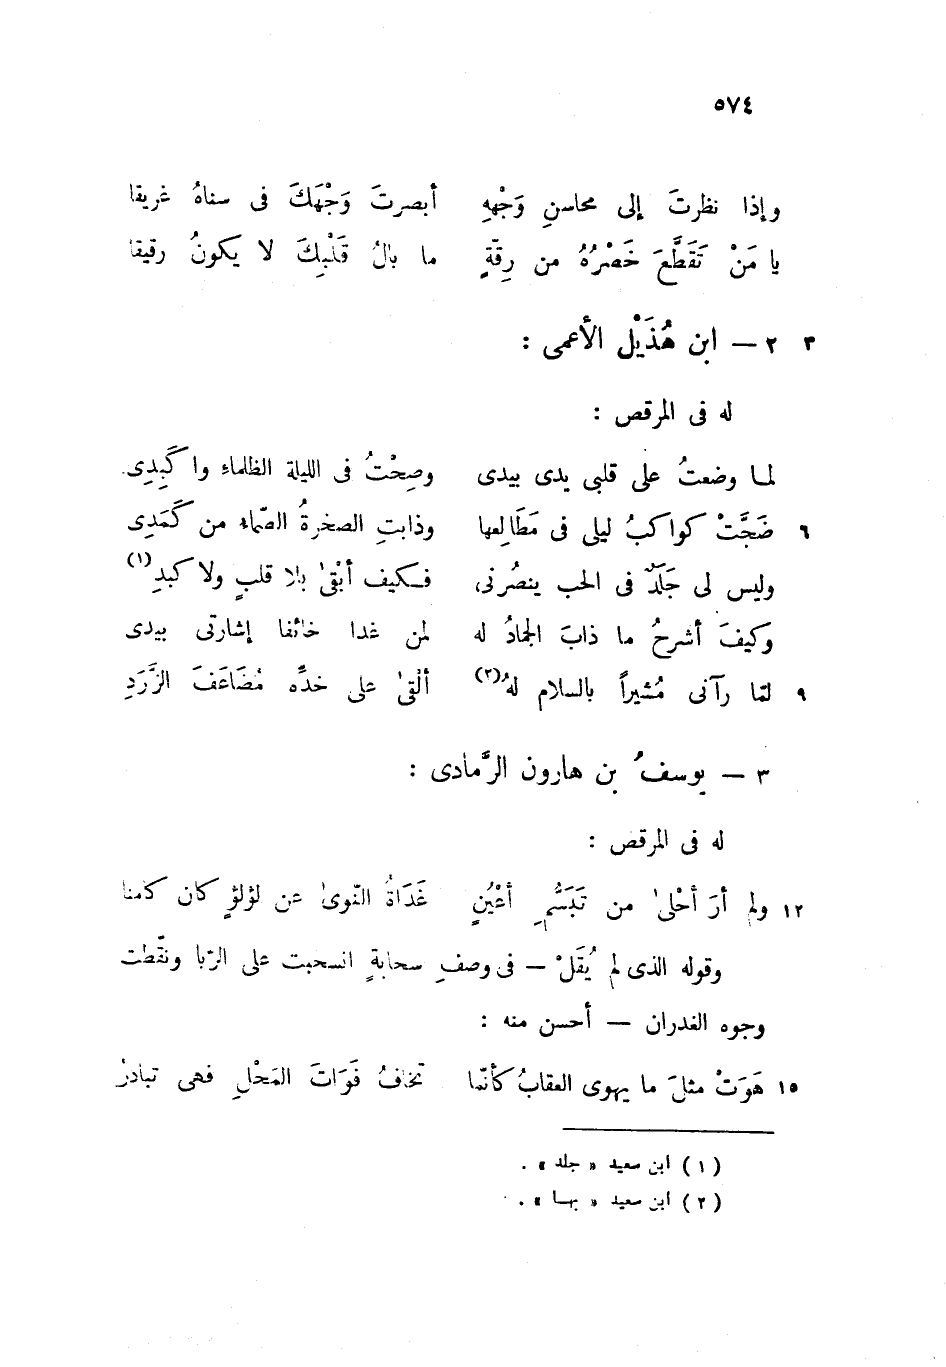 ٥٧٤
وإذا نظرتَ إلى محاسنِ وَجْهِهِ أبصرتَ وَجْهَكَ فى سناهُ غريقا
يا مَنْ تَقَطَّعَ خَصْرُهُ من رِقّةٍ ما بالُ قَلْبِكَ لا يكونُ رقيقا
٣ ٢ — ابن هُذَيْل الأعمى :
له فى المرقص :
لما وضعتُ على قلبى يدى بيدى وصِحْتُ فى الليلة الظلماءِ وا كَبِدِى
٦ ضَجَّتْ كواكبُ ليلى فى مَطَالِعها وذابتِ الصخرةُ الصّماء من كَمَدِى
وليس لى جَلَدٌ فى الحب ينصُرنى فكيف أبْقىٰ بلا قلبٍ ولا كبدِ(١)
وكيفَ أشرحُ ما ذابَ الجمادُ له لمن غدا خائفا إشارتى بيدى
٩ لمّا رآنى مُشيراً بالسلام لهُ(٢) ألْقىٰ على خدّه مُضَاعَفَ الزَّرَدِ
٣ — يوسفُ بن هارون الرَّمادى :
له فى المرقص :
١٢ ولم أرَ أحْلىٰ من تَبَسُّمِ أعْيُنٍ غَدَاةُ النّوىٰ عن لؤلؤٍ كان كامنا
وقوله الذى لم يُقَلْ — فى وصفِ سحابةٍ انسحبت على الرّبا ونقّطت
وجوه الغدران — أحسن منه :
١٥ هَوَتْ مثلَ ما يهوى العقابُ كأنّما تخافُ فَوَاتَ المَحْلِ فهى تبادرُ
(١) ابن سعيد « جلد » .
(٢) ابن سعيد « بها » .